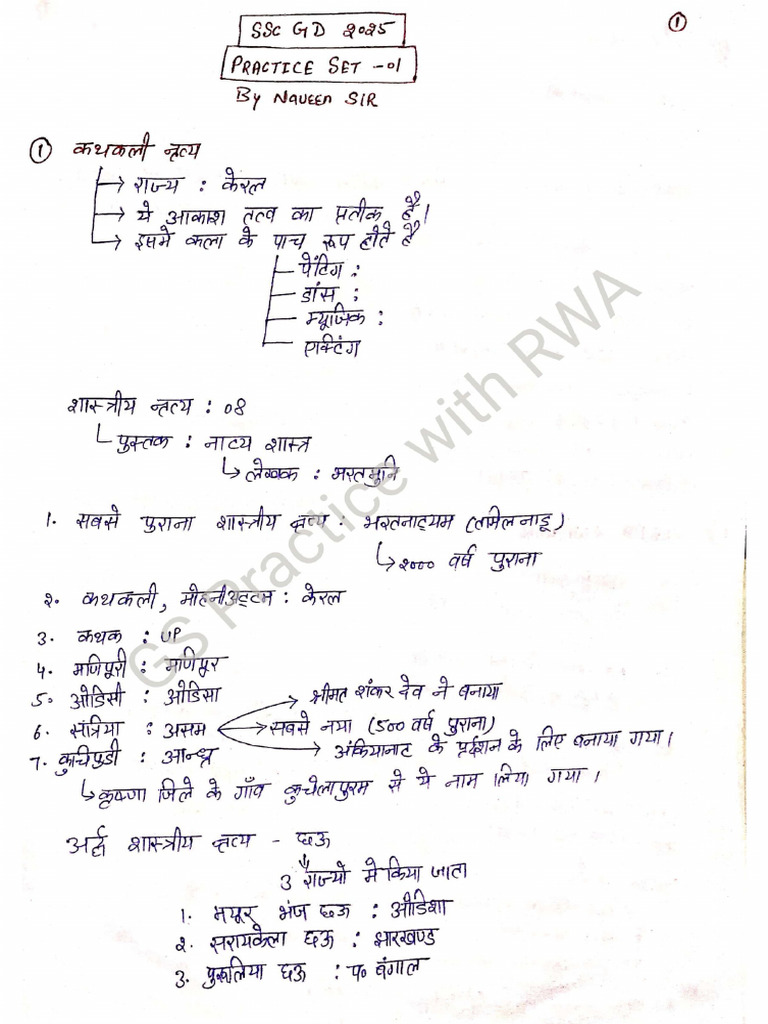 SSC GD 2025
1
PRACTICE SET -01
By Naveen SIR
1 कथकली नृत्य
→ राज्य : केरल
→ ये आकाश तत्व का प्रतीक है।
→ इसमे कला के पाच रूप होते है
पेंटिग :
डांस :
म्यूजिक :
एक्टिंग
शास्त्रीय नृत्य : 08
पुस्तक : नाट्य शास्त्र
→ लेखक : भरतमुनि
1. सबसे पुराना शास्त्रीय नृत्य : भरतनाट्यम (तमिलनाडू)
→ 2000 वर्ष पुराना
2. कथकली, मोहनीअट्टम : केरल
3. कथक : UP
4. मणिपुरी : मणिपुर
5. ओडिसी : ओडिसा → श्रीमंत शंकर देव ने बनाया
6. सत्रिया : असम → सबसे नया (500 वर्ष पुराना)
7. कुचिपुडी : आन्ध्र → अंकियानाट के प्रर्दशन के लिए बनाया गया।
→ कृष्णा जिले के गाँव कुचेलापुरम से ये नाम लिया गया।
अर्द्ध शास्त्रीय नृत्य - छऊ
3 राज्यो मे किया जाता
1. मयूर भंज छऊ : ओडिशा
2. सरायकेला छऊ : झारखण्ड
3. पुरूलिया छऊ : प० बंगाल
GS Practice with RWA